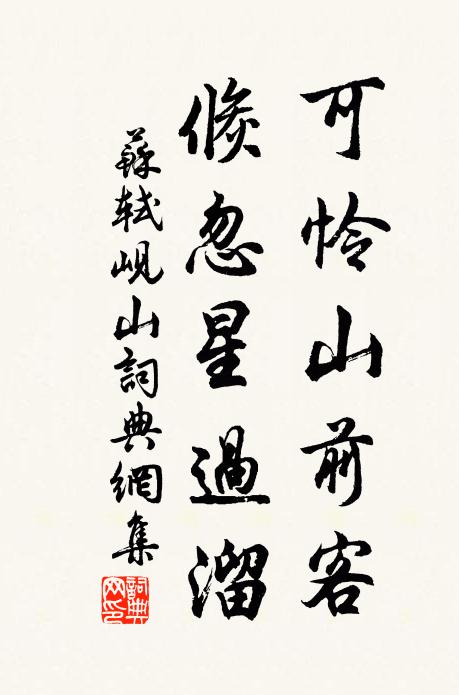 可怜山前客
倐忽星過溜
蘇軾峴山詞典網集
詞典網印